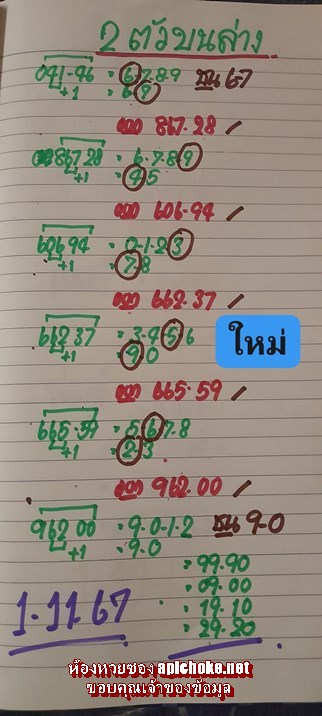 2 ตัวบนล่าง
091-96 = 6.7.8.9 ชน 67
+1 = 6.9
ออก 867.28 /
867 28 = 6.7.8.9
+1 = 4.5
ออก 606.94 /
606 94 = 0.1.2.3
+1 = 7.8
ออก 662.37 /
662 37 = 3.4.5.6
+1 = 9.0
ใหม่
ออก 665.59 /
665.59 = 5.6.7.8
+1 = 2.3
ออก 962.00 /
962 00 = 9.0.1.2 ชน 9.0
+1 = 9.0
= 99.90
= 09.00
= 19.10
= 29.20
1.11.67
ห้องหวยซอง apichoke.net
ขอบคุณเจ้าของข้อมูล